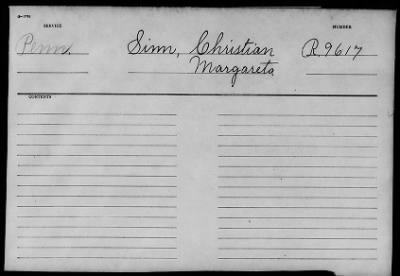 SERVICE
NUMBER
Penn.
Sinn, Christian
R.9617
Margareta
CONTENTS